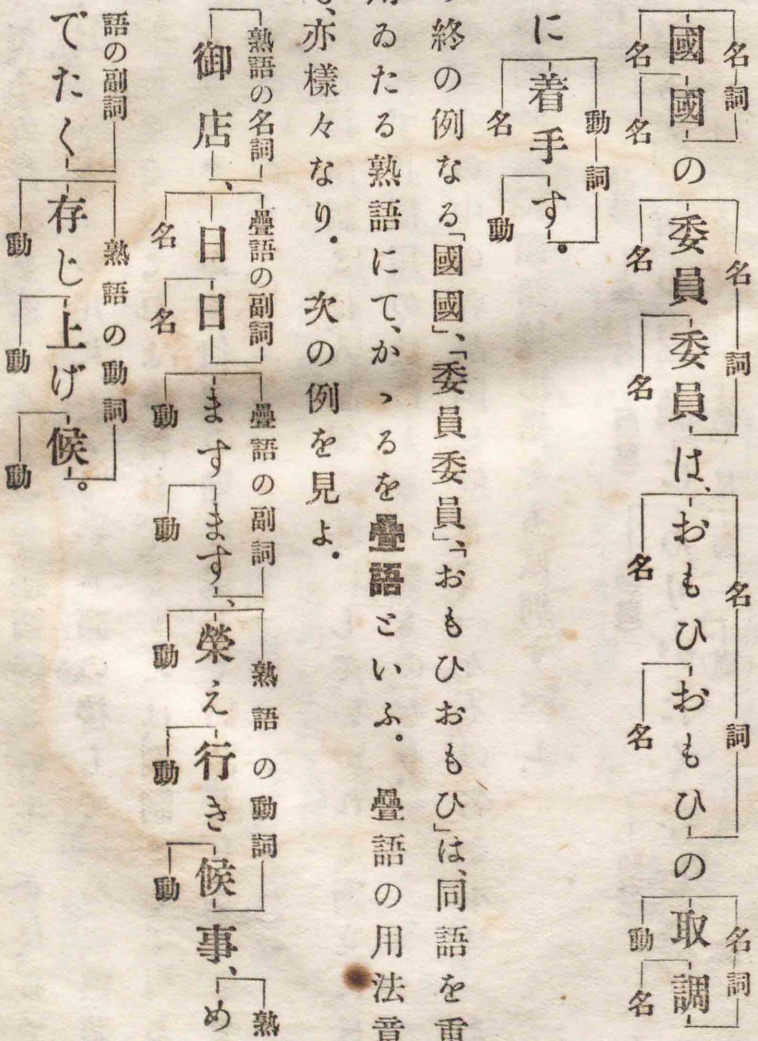 名詞 名詞 名詞 名詞
國國の委員委員は、おもひおもひの取調
名 名 名 名 名 名 動 名
動詞
に着手す。
名 動
終の例なる「國國」、「委員委員」、「おもひおもひ」は、同語を重
ゐたる熟語にて、かゝるを疊語といふ。 疊語の用法
亦樣々なり。 次の例を見よ。
熟語の名詞 疊語の副詞 疊語の副詞 熟語の動詞 熟
御店、日日ますます、榮え行き候事、め
名 名 動 動 動 動 動
語の副詞 熟語の動詞
でたく存じ上げ候。
動 動 動